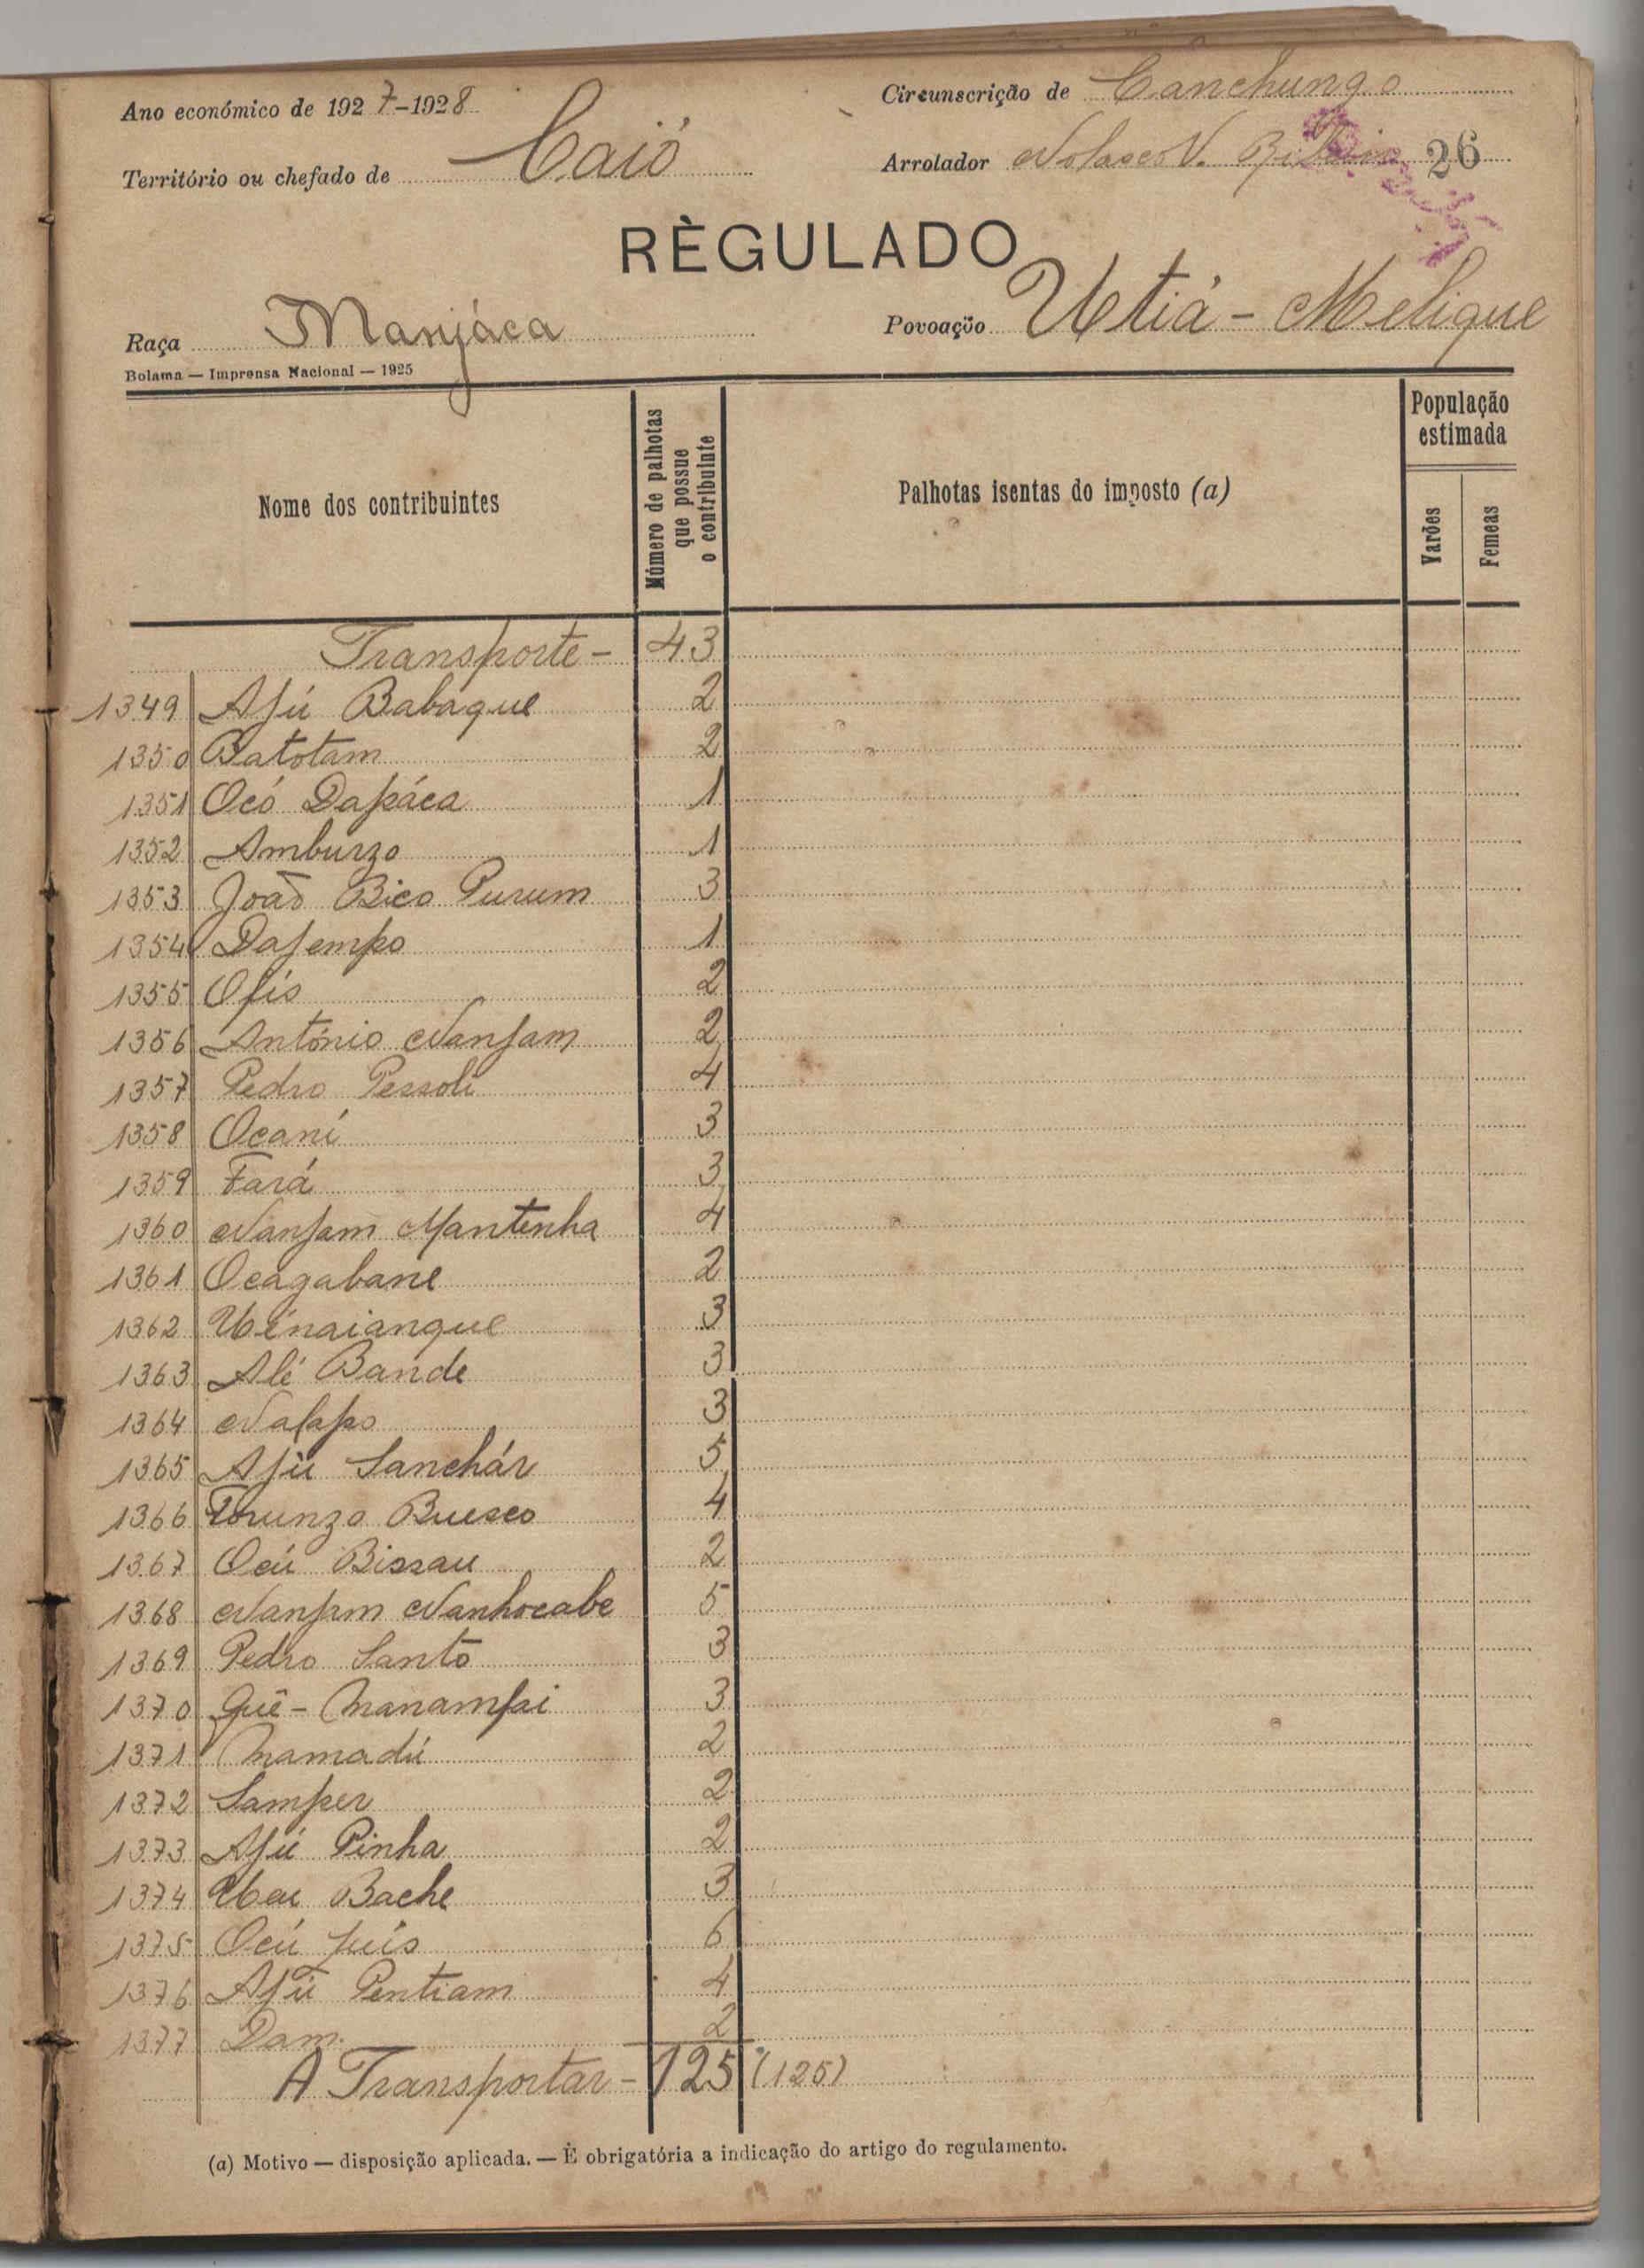 Ano económico de 1927-1928
Circunscrição de Canchungo
Território ou chefado de Caió
Arrolador Nolasco V. 26
RÈGULADO
Raça Manjáca
Povoação Utiá - Melique
Bolama — Imprensa Nacional — 1925
Nome dos contribuintes
Número de palhotas que possue o contribuinte
Palhotas isentas do imposto (a)
População estimada
Varões
Femeas
Transporte - 43
1349 Afú Babaque 2
1350 Batotam 2
1351 Ocó Dapáca 1
1352 Amburzo 1
1353 João Bico Purum 3
1354 Dafempo 1
1355 Ofis 2
1356 António Nanfam 2
1357 Pedro Pessoli 4
1358 Ocaní 3
1359 Fará 3
1360 Nanfam Mantenha 4
1361 Ocagabane 2
1362 Uénaianque 3
1363 Alé Bande 3
1364 Nafapo 3
1365 Afú Sanchár 5
1366 Brunzo Buesco 4
1367 Ocú Bissau 2
1368 Nanfam Nanhocabe 5
1369 Pedro Santo 3
1370 Quê - Manampai 3
1371 Mamadú 2
1372 Samper 2
1373 Afú Pinha 2
1374 Ubai Bache 3
1375 Ocú 6
1376 Afú Pentiam 4
1377 Dam 2
A Transportar - 125 (125)
(a) Motivo — disposição aplicada. — È obrigatória a indicação do artigo do regulamento.